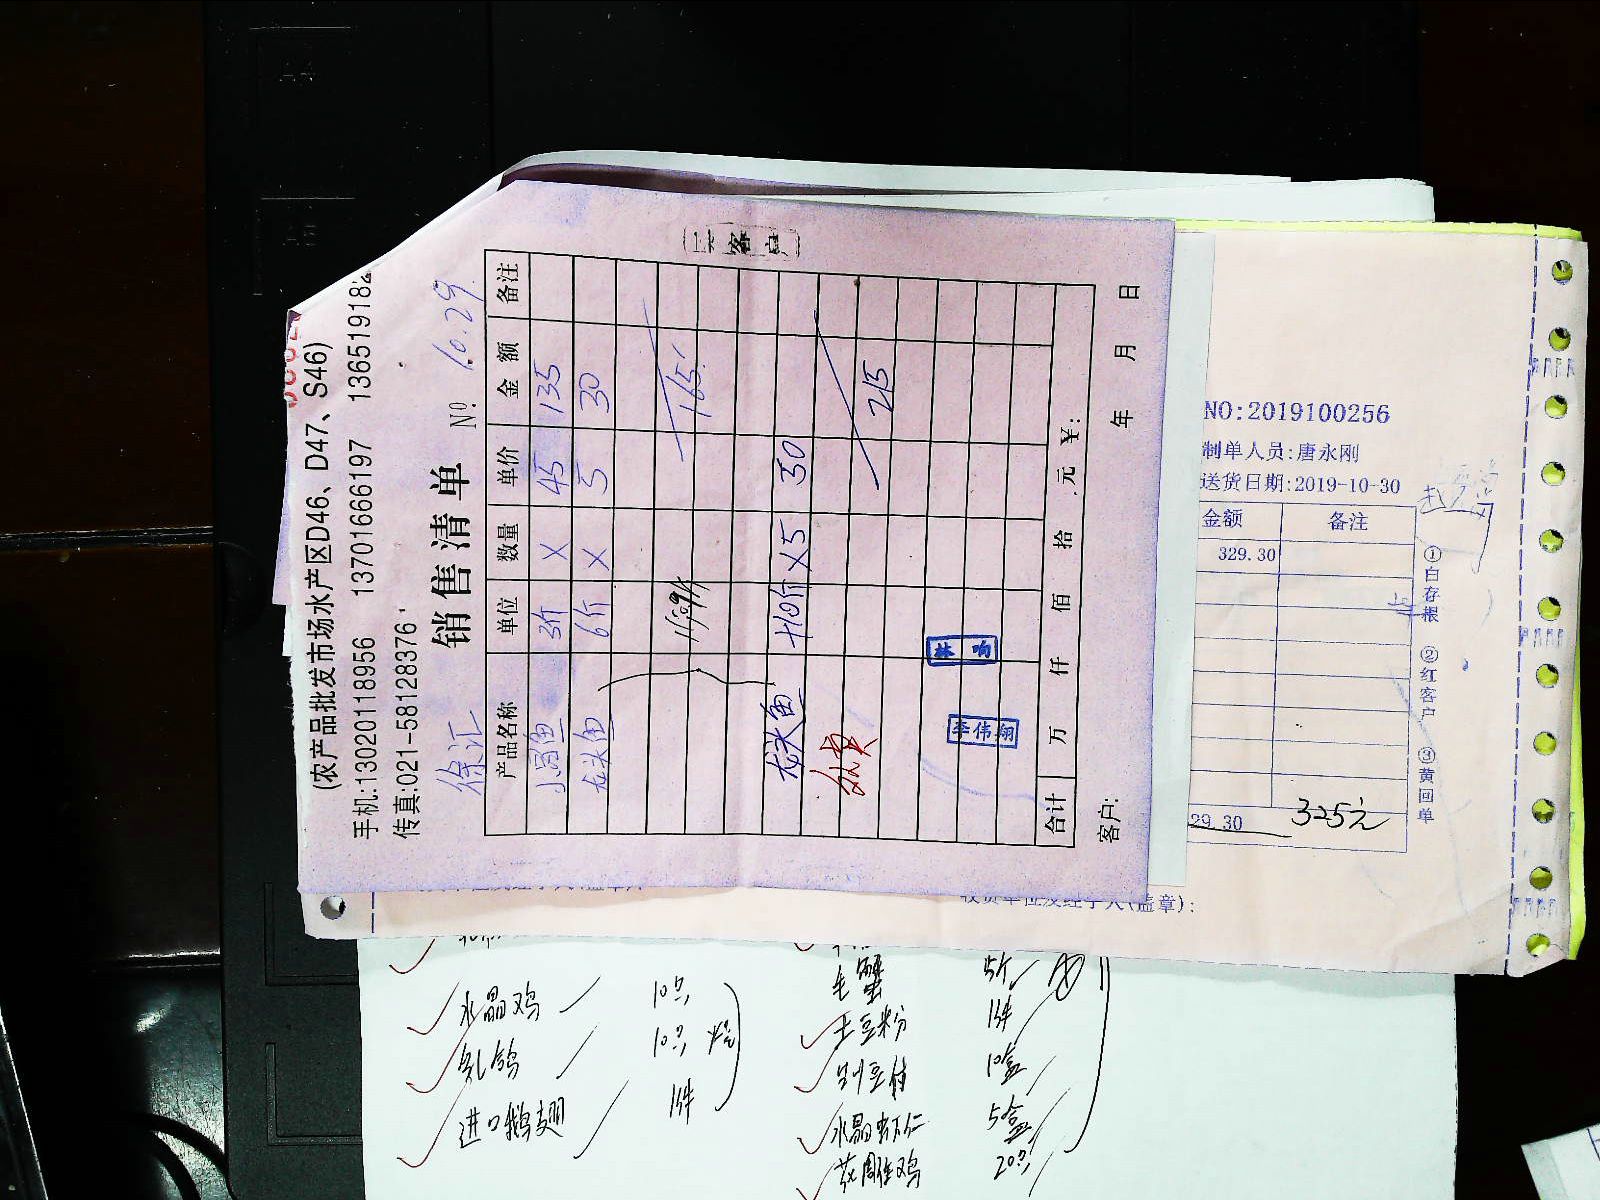 (农产品批发市场水产区D46、D47、S46)
手机:13020118956 13701666197 1365191182
传真:021-58128376
销售清单 Nº 10.29
徐汇
产品名称 单位 数量 单价 金额 备注
小黄鱼 3斤 X 45 135
龙头鱼 6斤 X 5 30
165
龙头鱼 +10斤 X5 30
215
林响
李伟翔
合计 万 仟 佰 拾 元 ¥:
客户: 年 月 日
二客户
NO:2019100256
制单人员:唐永刚
送货日期:2019-10-30
金额 备注
329.30
29.30 325元
①白存根 ②红客户 ③黄回单
收货单位及经手人(盖章):
水晶鸡 10只
乳鸽 10只
进口鹅翅 1件
毛蟹 5斤
土豆粉 1件
10盒
水晶虾仁 5盒
花雕鸡 20只